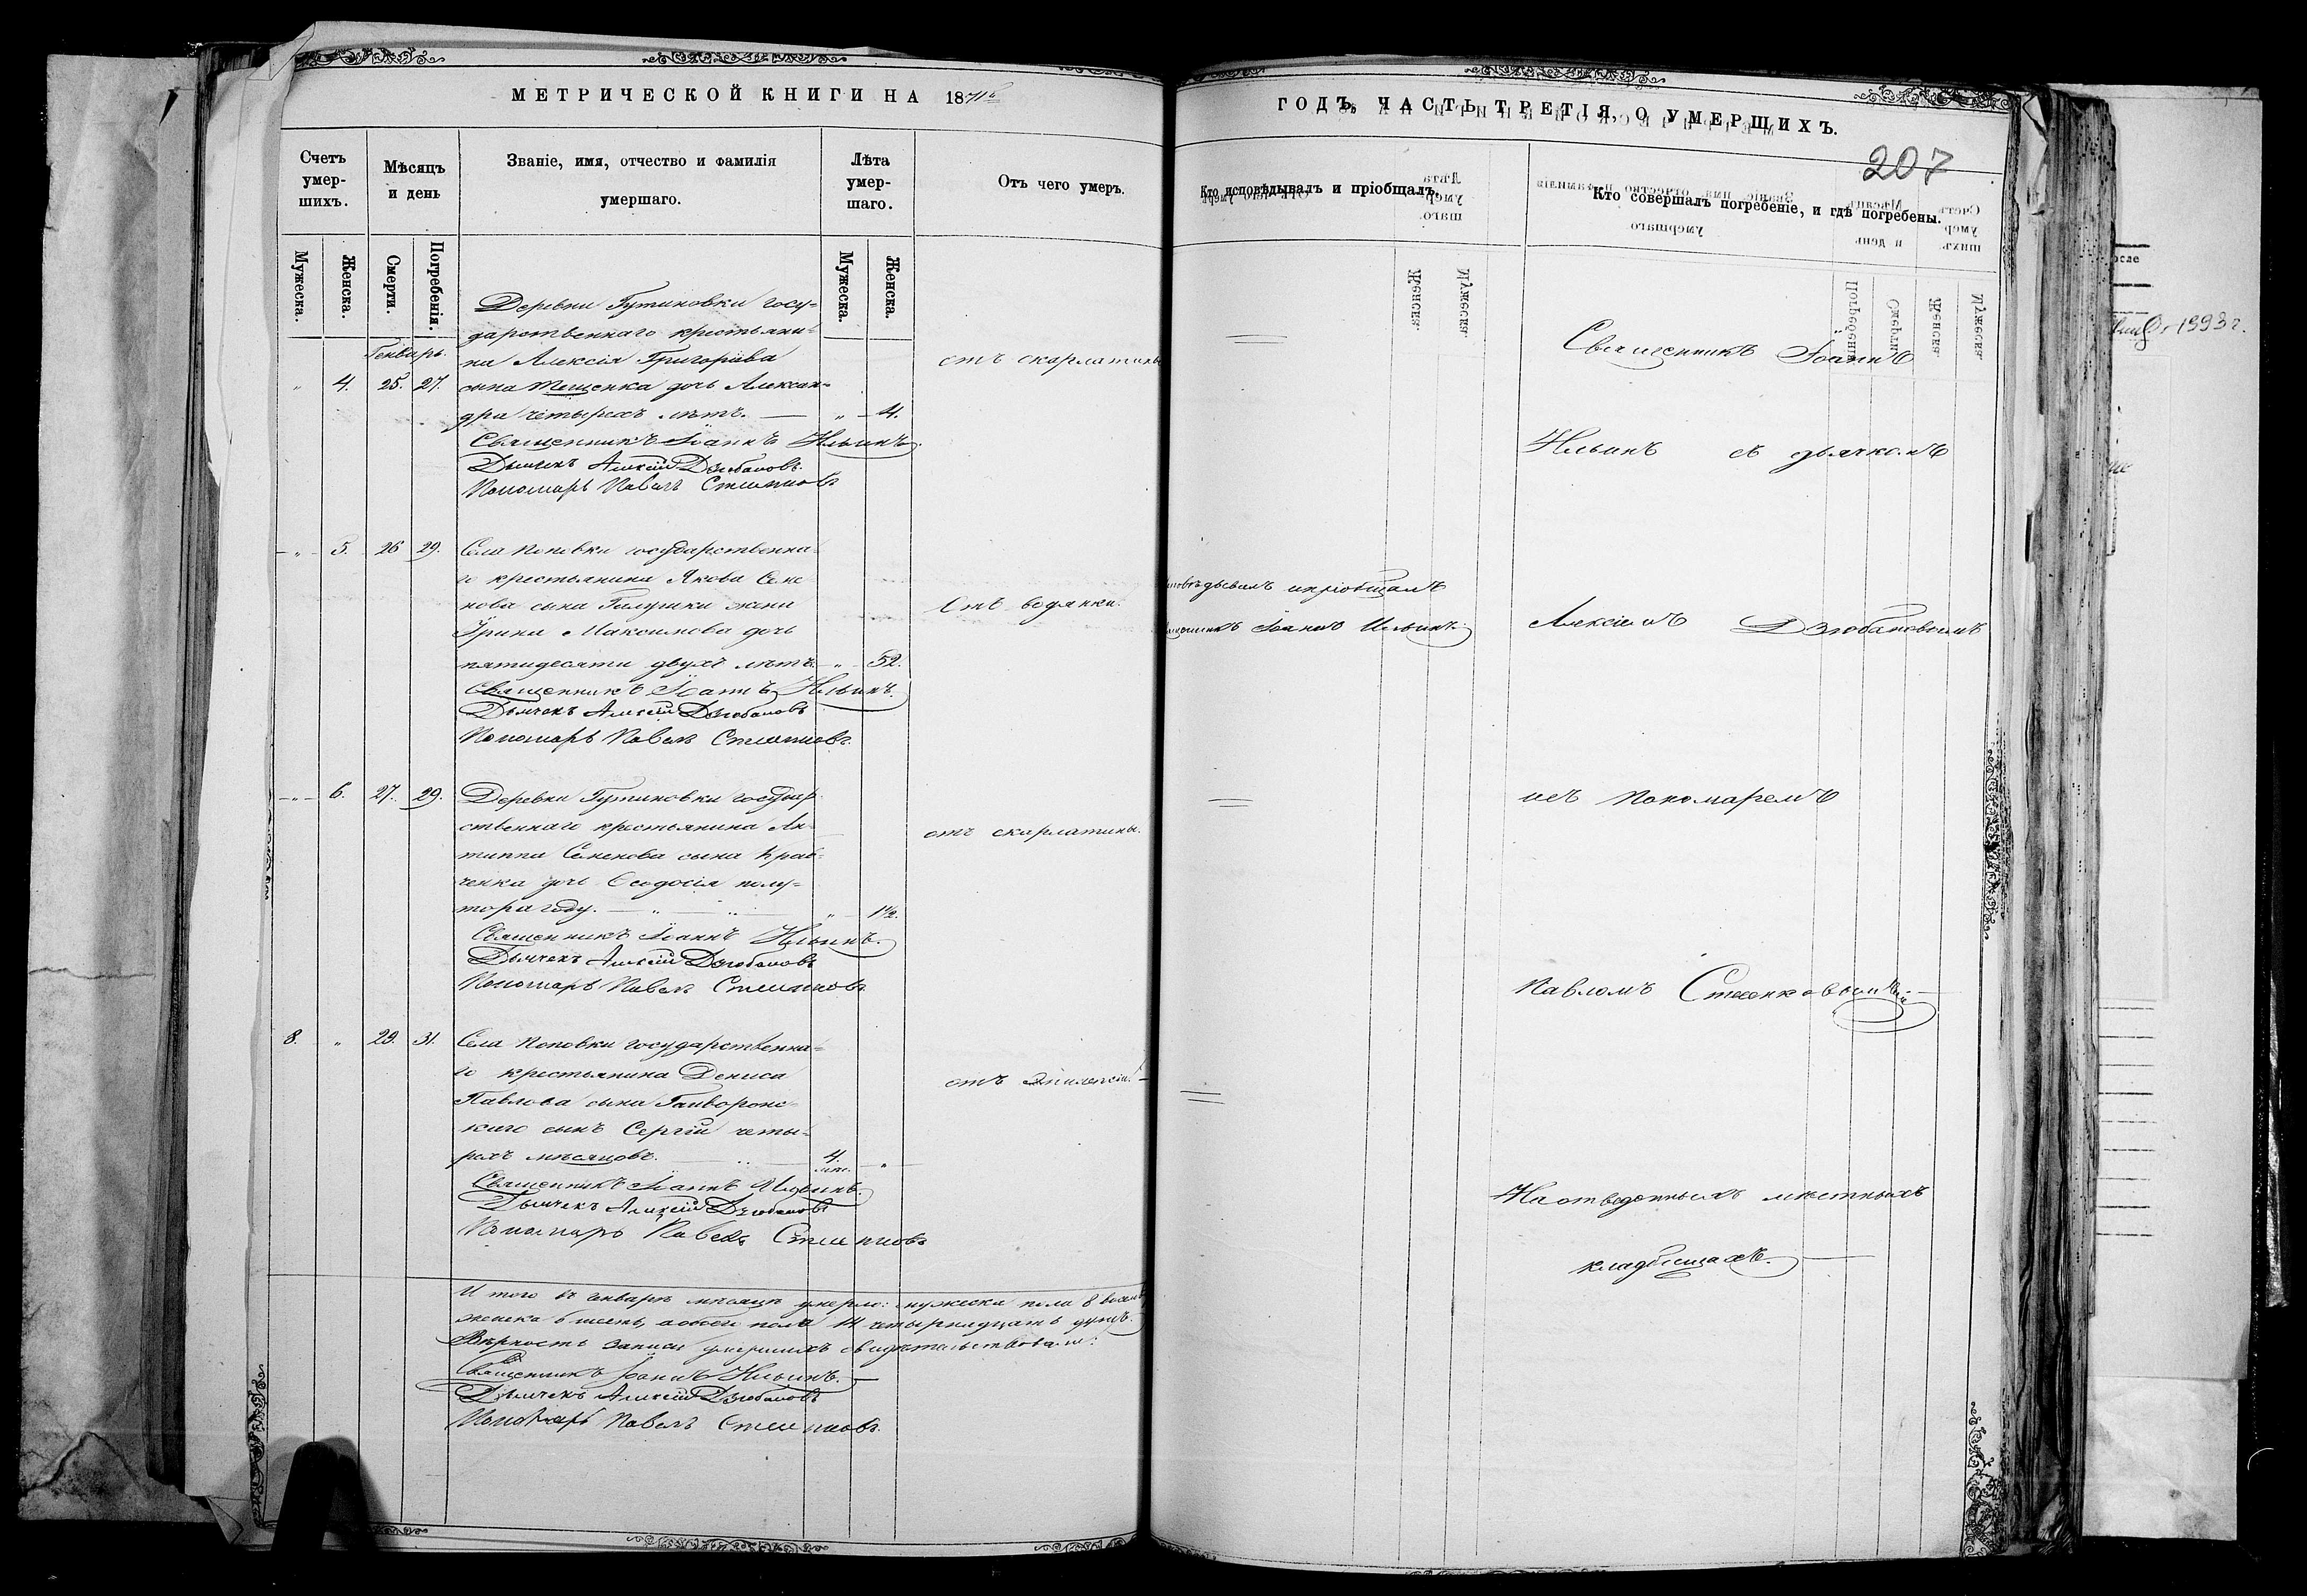 МЕТРИЧЕСКОЙ КНИГИ НА 1871й
Счетъ умер-шихъ.
Мѣсяцъ и день
Званіе, имя, отчество и фамилія умершаго.
Лѣта умер-шаго.
Отъ чего умеръ.
Мужеска.
Женска.
Смерти.
Погребенія.
Мужеска.
Женска.
Генварь.
Деревни Гутиновки госу=
дарственнаго крестьяни=
на Алексія Григоріева
" 4. 25. 27. сына Тещенка дочь Алексан=
дра четырехъ лѣтъ. — " — 4.
отъ скарлатины
Священникъ Іоаннъ Ильинъ.
Дьячекъ Алексій Дзюбановъ.
Пономарь Павелъ
" 5. 26 29. Села Поповки государственна=
го крестьянина Якова Семе
нова сына Галушки жена
Ірина Максимова дочь
пятидесяти двухъ лѣтъ. " 52.
Отъ водянки.
Священникъ Іоаннъ Ильинъ.
Дьячекъ Алексій Дзюбановъ
Пономарь Павелъ
" 6. 27. 29. Деревни Гутиновки государ
ственнаго крестьянина Ан
типпа Семенова сына Крав=
ченка дочь Ѳеодосія полу=
тора году. — " — " — " 1½.
отъ скарлатины.
Священникъ Іоаннъ Ильинъ.
Дьячекъ Алексій Дзюбановъ
Пономарь Павелъ
8. " 29. 31. Села Поповки государственна=
го крестьянина Дениса
Павлова сына Гайворонс=
каго сынъ Сергій четы=
рехъ мѣсяцовъ. — 4. мѣс. "
отъ эпилепсіи. —
Священникъ Іоаннъ Ильинъ.
Дьячекъ Алексій Дзюбановъ
Пономарь Павелъ
И того въ генварѣ мѣсяцѣ умерло: мужеска пола 8 восемь
женска 6 шесть, а обоего пола 14 четырнадцать душъ.
Вѣрность записи умершихъ свидѣтельствовали:
Священникъ Іоаннъ Ильинъ. —
Дьячекъ Алексій Дзюбановъ
Пономарь Павелъ
ГОДЪ, ЧАСТЬ ТРЕТІЯ, О УМЕРШИХЪ.
207
Кто исповѣдывалъ и пріобщалъ.
Кто совершалъ погребеніе, и гдѣ погребены.
Священникъ Іоаннъ
Ильинъ съ дьячкомъ
исповѣдывалъ и пріобщалъ
Священникъ Іоаннъ Ильинъ.
Алексіемъ Дзюбановымъ
и съ пономаремъ
Павломъ
На отведенныхъ мѣстныхъ
кладбищахъ. —
1993 г.